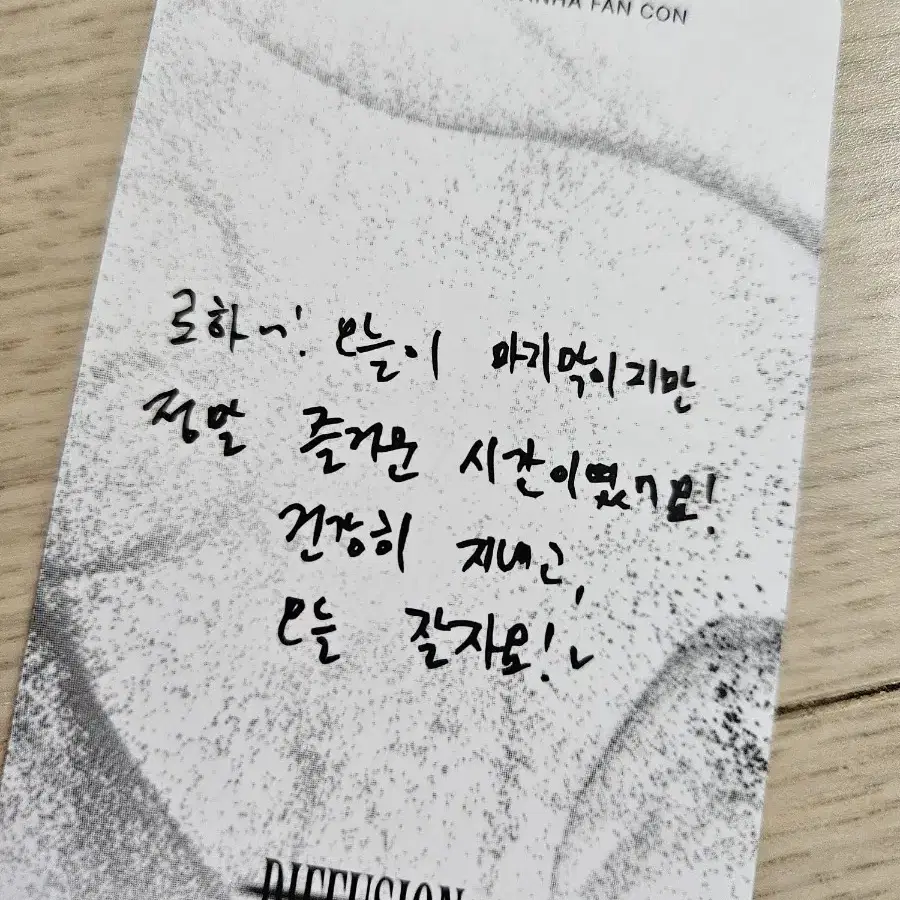 FAN CON
로하~! 오늘이 마지막이지만
정말 즐거운 시간이였어요!
건강히 지내고,
오늘 잘자요!~
DIFFUSION